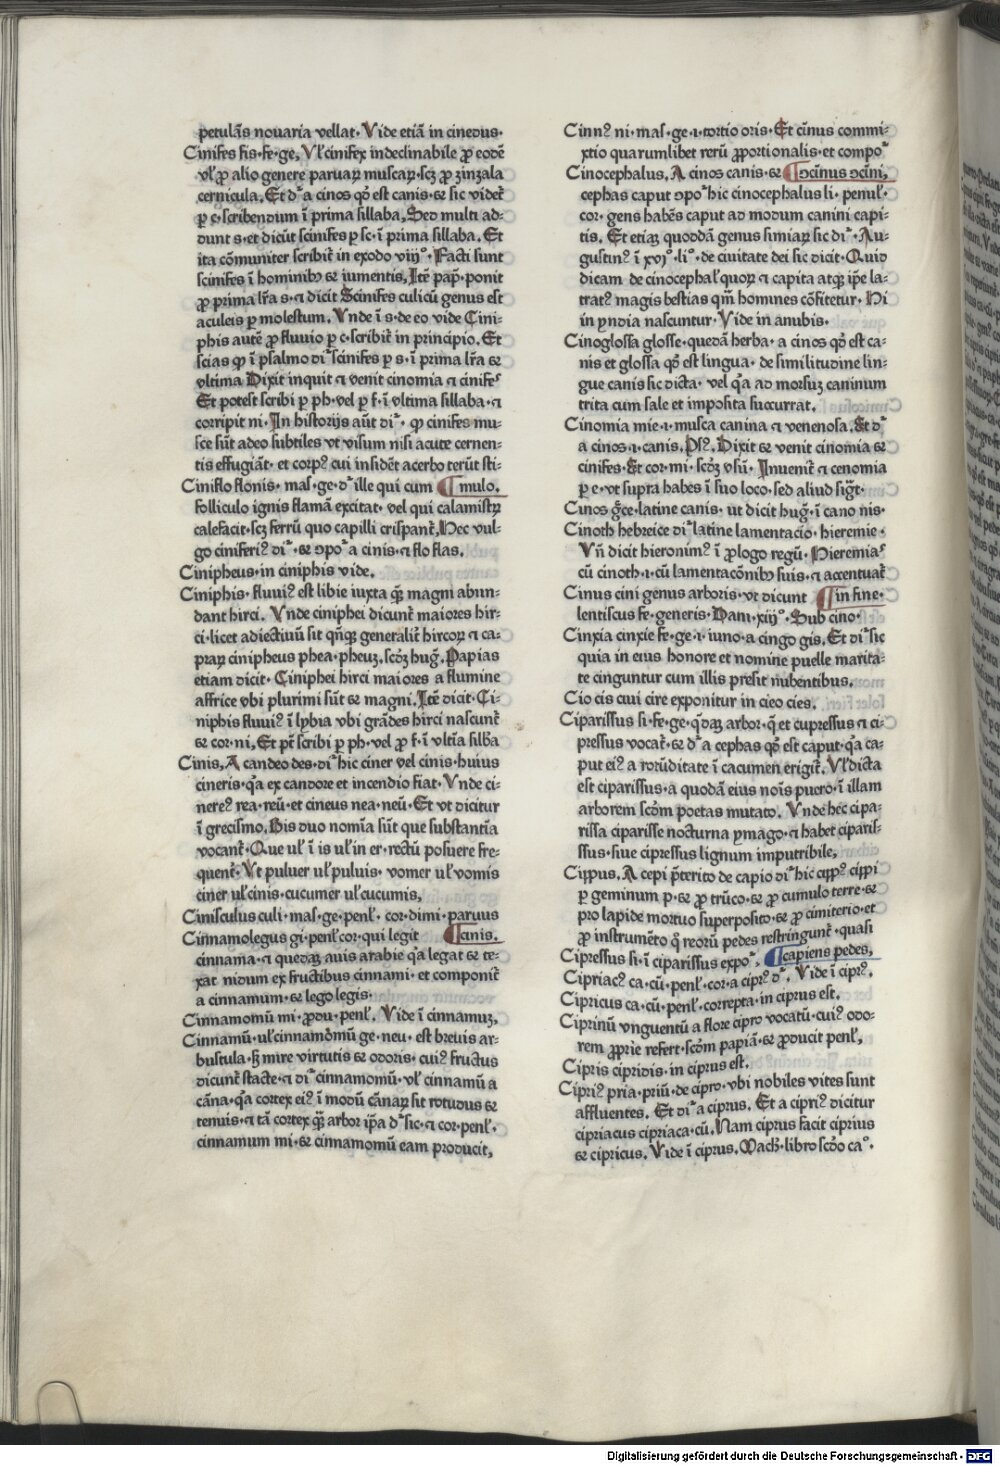 petulãs nouaria vellat. Vide etiã in cinedus.
Cinifes fis. fe. ge. Vl̃ cinifex indeclinabile ꝓ eodē
vl̃ ꝓ alio genere paruaꝝ muscaꝝ. scꝫ ꝓ zinzala
cernicula. Et dr̃ a cinos qd̃ est canis. ⁊ sic videt̃
p c. scribendum ĩ prima sillaba. Sed multi ad-
dunt s. et dicũt scinifes p sc. ĩ prima sillaba. Et
ita cõmuniter scribit̃ in exodo viijº. Facti sunt
scinifes ĩ hominibꝫ ⁊ iumentis. Itẽ pap. ponit
ꝓ prima lr̃a s. ⁊ dicit Scinifes culicũ genus est
aculeis p molestum. Vnde ĩ s. de eo vide Cini-
phis autẽ ꝓ fluuio p c. scribit̃ in principio. Et
scias ꝙ ĩ psalmo dr̃ scinifes p s. ĩ prima lr̃a ⁊
vltima Dixit inquit ⁊ venit cinomia ⁊ cinifes
Et potest scribi p ph. vel p f. ĩ vltima sillaba. ⁊
corripit ni. In historijs aũt dr̃. ꝙ cinifes mu-
sce sũt adeo subtiles vt visum nisi acute cernen-
tis effugiãt. et corpꝰ cui insidẽt acerbo terũt sti-
Ciniflo flonis. mas. ge. dr̃ ille qui cum ¶mulo.
folliculo ignis flamã excitat. vel qui calamistꝝ
calefacit. scꝫ ferrũ quo capilli crispant̃. Hec vul-
go ciniferiꝰ dr̃. ⁊ ɔpoʳ a cinis. ⁊ flo flas.
Cinipheus. in ciniphis vide.
Ciniphis. fluuiꝰ est libie iuxta quẽ magni abun-
dant hirci. Vnde ciniphei dicunt̃ maiores hir-
ci. licet adiectiuũ sit qñqꝫ generalit̃ hircoꝝ ⁊ ca-
praꝝ cinipheus phea. pheuꝫ. scdꝫ hug̃. Papias
etiam dicit. Ciniphei hirci maiores a flumine
affrice vbi plurimi sũt ⁊ magni. Itẽ dicit. Ci-
niphis fluuiꝰ ĩ lybia vbi grãdes hirci nascunt̃
⁊ cor. ni. Et põt scribi p ph. vel ꝓ f. ĩ vltĩa silɫa
Cinis. A candeo des. dr̃ hic ciner vel cinis. huius
cineris. qꝛa ex candore et incendio fiat. Vnde ci-
nereꝰ rea. reũ. et cineus nea. neũ. Et vt dicitur
ĩ grecismo. His duo nomĩa sũt que substantĩa
vocant̃. Que ul̃ ĩ is ul̃ in er. rectũ posuere fre-
quent̃. Vt puluer ul̃ puluis. vomer ul̃ vomis
ciner ul̃ cinis. cucumer ul̃ cucumis.
Cinisculus culi. mas. ge. penl̃. cor. dimi. paruus
Cinnamolegus gi. penl̃ cor. qui legit ¶cinis.
cinnama. ⁊ quedaꝫ auis arabie qꝛa legat ⁊ te-
xat nidum ex fructibus cinnami. et componit̃
a cinnamum. ⁊ lego legis.
Cinnamomũ mi. ꝓdu. penl̃. Vide ĩ cinnamuꝫ.
Cinnamũ. ul̃ cinnamõmũ ge. neu. est breuis ar-
bustula. sꝫ mire virtutis ⁊ odoris. cuiꝰ fructus
dicunt̃ stacte. ⁊ dr̃ cinnamomũ. vl̃ cinnamũ a
cãna. qꝛa cortex eiꝰ ĩ modũ cãnaꝝ sit rotũdus ⁊
tenuis. ⁊ tã cortex quẽ arbor ip̃a dr̃ sic. ⁊ cor. penl̃.
cinnamum mi. ⁊ cinnamomũ eam producit.
Cinnꝰ ni. mas. ge. .i. tortio oris. Et cinus commi-
xtio quarumlibet rerũ ꝓportionalis. et compoʳ
Cinocephalus. A cinos canis. ⁊ ¶ɔcinus ɔcini.
cephas caput ɔpoʳ hic cinocephalus li. penul̃.
cor. gens habẽs caput ad modum canini capi-
tis. Et etiaꝫ quoddã genus simiaꝝ sic dr̃. Au-
gustinꝰ ĩ xvjº. liº. de ciuitate dei sic dicit. Quid
dicam de cinocephal̃ quoꝝ ⁊ capita atqꝫ ip̃e la-
tratꝰ magis bestias qm̃ homines cõfitetur. Hi
in yndia nascuntur. Vide in anubis.
Cinoglossa glosse. quedã herba. a cinos qd̃ est ca-
nis et glossa qd̃ est lingua. de similitudine lin-
gue canis sic dicta. vel qꝛa ad morsuꝫ caninum
trita cum sale et imposita succurrat.
Cinomia mie. .i. musca canina ⁊ venenosa. Et dr̃
a cinos. .i. canis. Psꝰ. Dixit ⁊ venit cinomia ⁊
cinifes. Et cor. mi. scdꝫ vsũ. Inuenit̃ ⁊ cenomia
p e. vt supra habes ĩ suo loco. sed aliud sigt̃.
Cinos g̃ce. latine canis. ut dicit hug̃. ĩ cano nis.
Cinoth hebreice dr̃ latine lamentacio. hieremie.
Vñ dicit hieronimꝰ ĩ ꝓlogo regũ. Hieremias
cũ cinoth. .i. cũ lamentacõnibꝫ suis. ⁊ accentuat̃
Cinus cini genus arboris. vt dicunt ¶in fine.
lentiscus fe. generis. Dani. xiijº. Sub cino.
Cinxia cinxie fe. ge. .i. iuno. a cingo gis. Et dr̃ sic
quia in eius honore et nomine puelle marita-
te cinguntur cum illis presit nubentibus.
Cio cis ciui cire exponitur in cieo cies.
Ciparissus si. fe. ge. qdaꝫ arbor. q̃ et cupressus ⁊ ci-
pressus vocat̃. ⁊ dr̃ a cephas qd̃ est caput. qꝛa ca-
put eiꝰ a rotũditate ĩ cacumen erigit̃. Vl̃ dicta
est ciparissus. a quodã eius noĩs puero. ĩ illam
arborem scdm̃ poetas mutato. Vnde hec cipa-
rissa ciparisse nocturna ymago. ⁊ habet ciparis-
sus. siue cipressus lignum imputribile.
Cippus. A cepi p̃terito de capio dr̃ hic cippꝰ cippi
p geminum p. ⁊ ꝓ trũco. ⁊ ꝓ cumulo terre. ⁊
pro lapide mortuo superposito. ⁊ ꝓ cimiterio. et
ꝓ instrumẽto q̃ reorũ pedes restringunt̃. quasi
Cipressus si. ĩ ciparissus expoʳ. ¶capiens pedes.
Cipriacꝰ ca. cũ. penl̃. cor. a ciprꝰ dr̃. Vide ĩ ciprꝰ.
Cipricus ca. cũ. penl̃. correpta. in ciprus est.
Ciprinũ vnguentũ a flore cipro vocatũ. cuiꝰ odo-
rem ꝓprie refert. scdm̃ papiã. ⁊ ꝓducit penl̃.
Cipris cipridis. in ciprus est.
Cipriꝰ pria. priũ. de cipro. vbi nobiles vites sunt
affluentes. Et dr̃ a ciprus. Et a cipriꝰ dicitur
cipriacus cipriaca. cũ. Nam ciprus facit ciprius
⁊ cipricus. Vide ĩ ciprus. Mach. libro scdo caº.
Digitalisierung gefördert durch die Deutsche Forschungsgemeinschaft - DFG